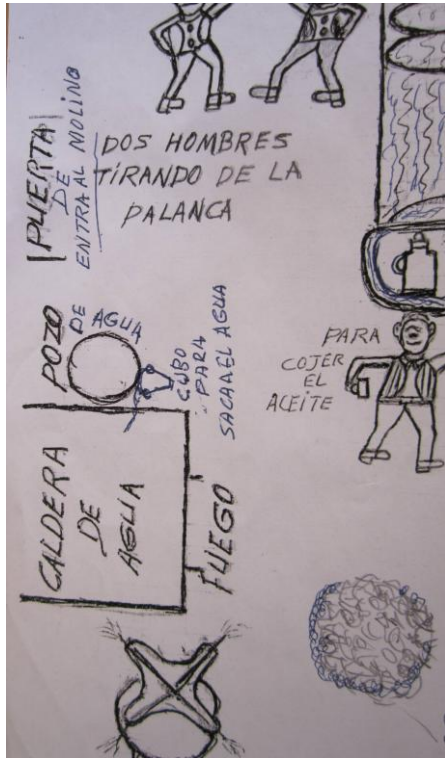 PUERTA
DE
ENTRA AL MOLINO
DOS HOMBRES
TIRANDO DE LA
PALANCA
POZO
DE AGUA
CUBO
PARA
SACAR EL AGUA
PARA
COJER
EL
ACEITE
CALDERA
DE
AGUA
FUEGO